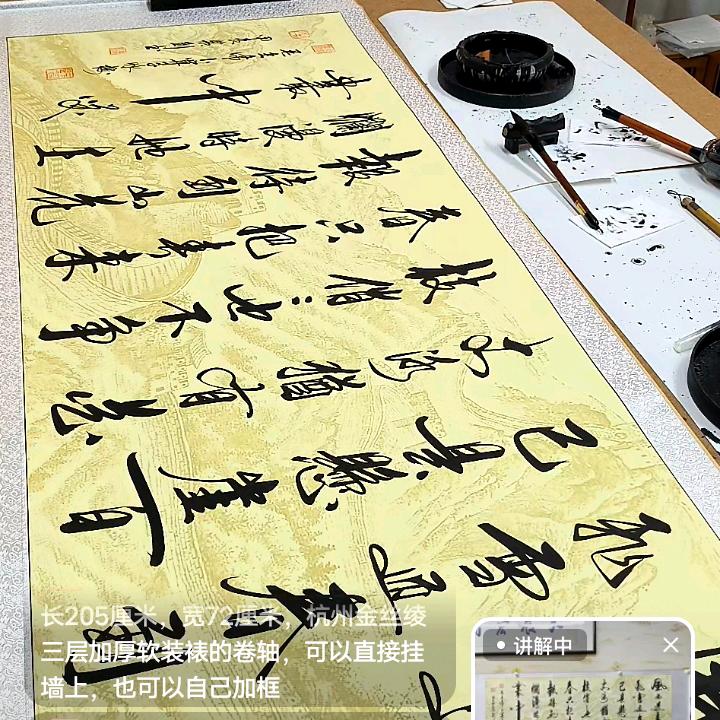 飞雪迎春到
已是悬崖百
丈冰犹有花
枝俏：也不争
春只把春来
报待到山花
烂漫时她在
丛中笑
长205厘米，宽72厘米，杭州金丝绫
三层加厚软装裱的卷轴，可以直接挂
墙上，也可以自己加框
讲解中